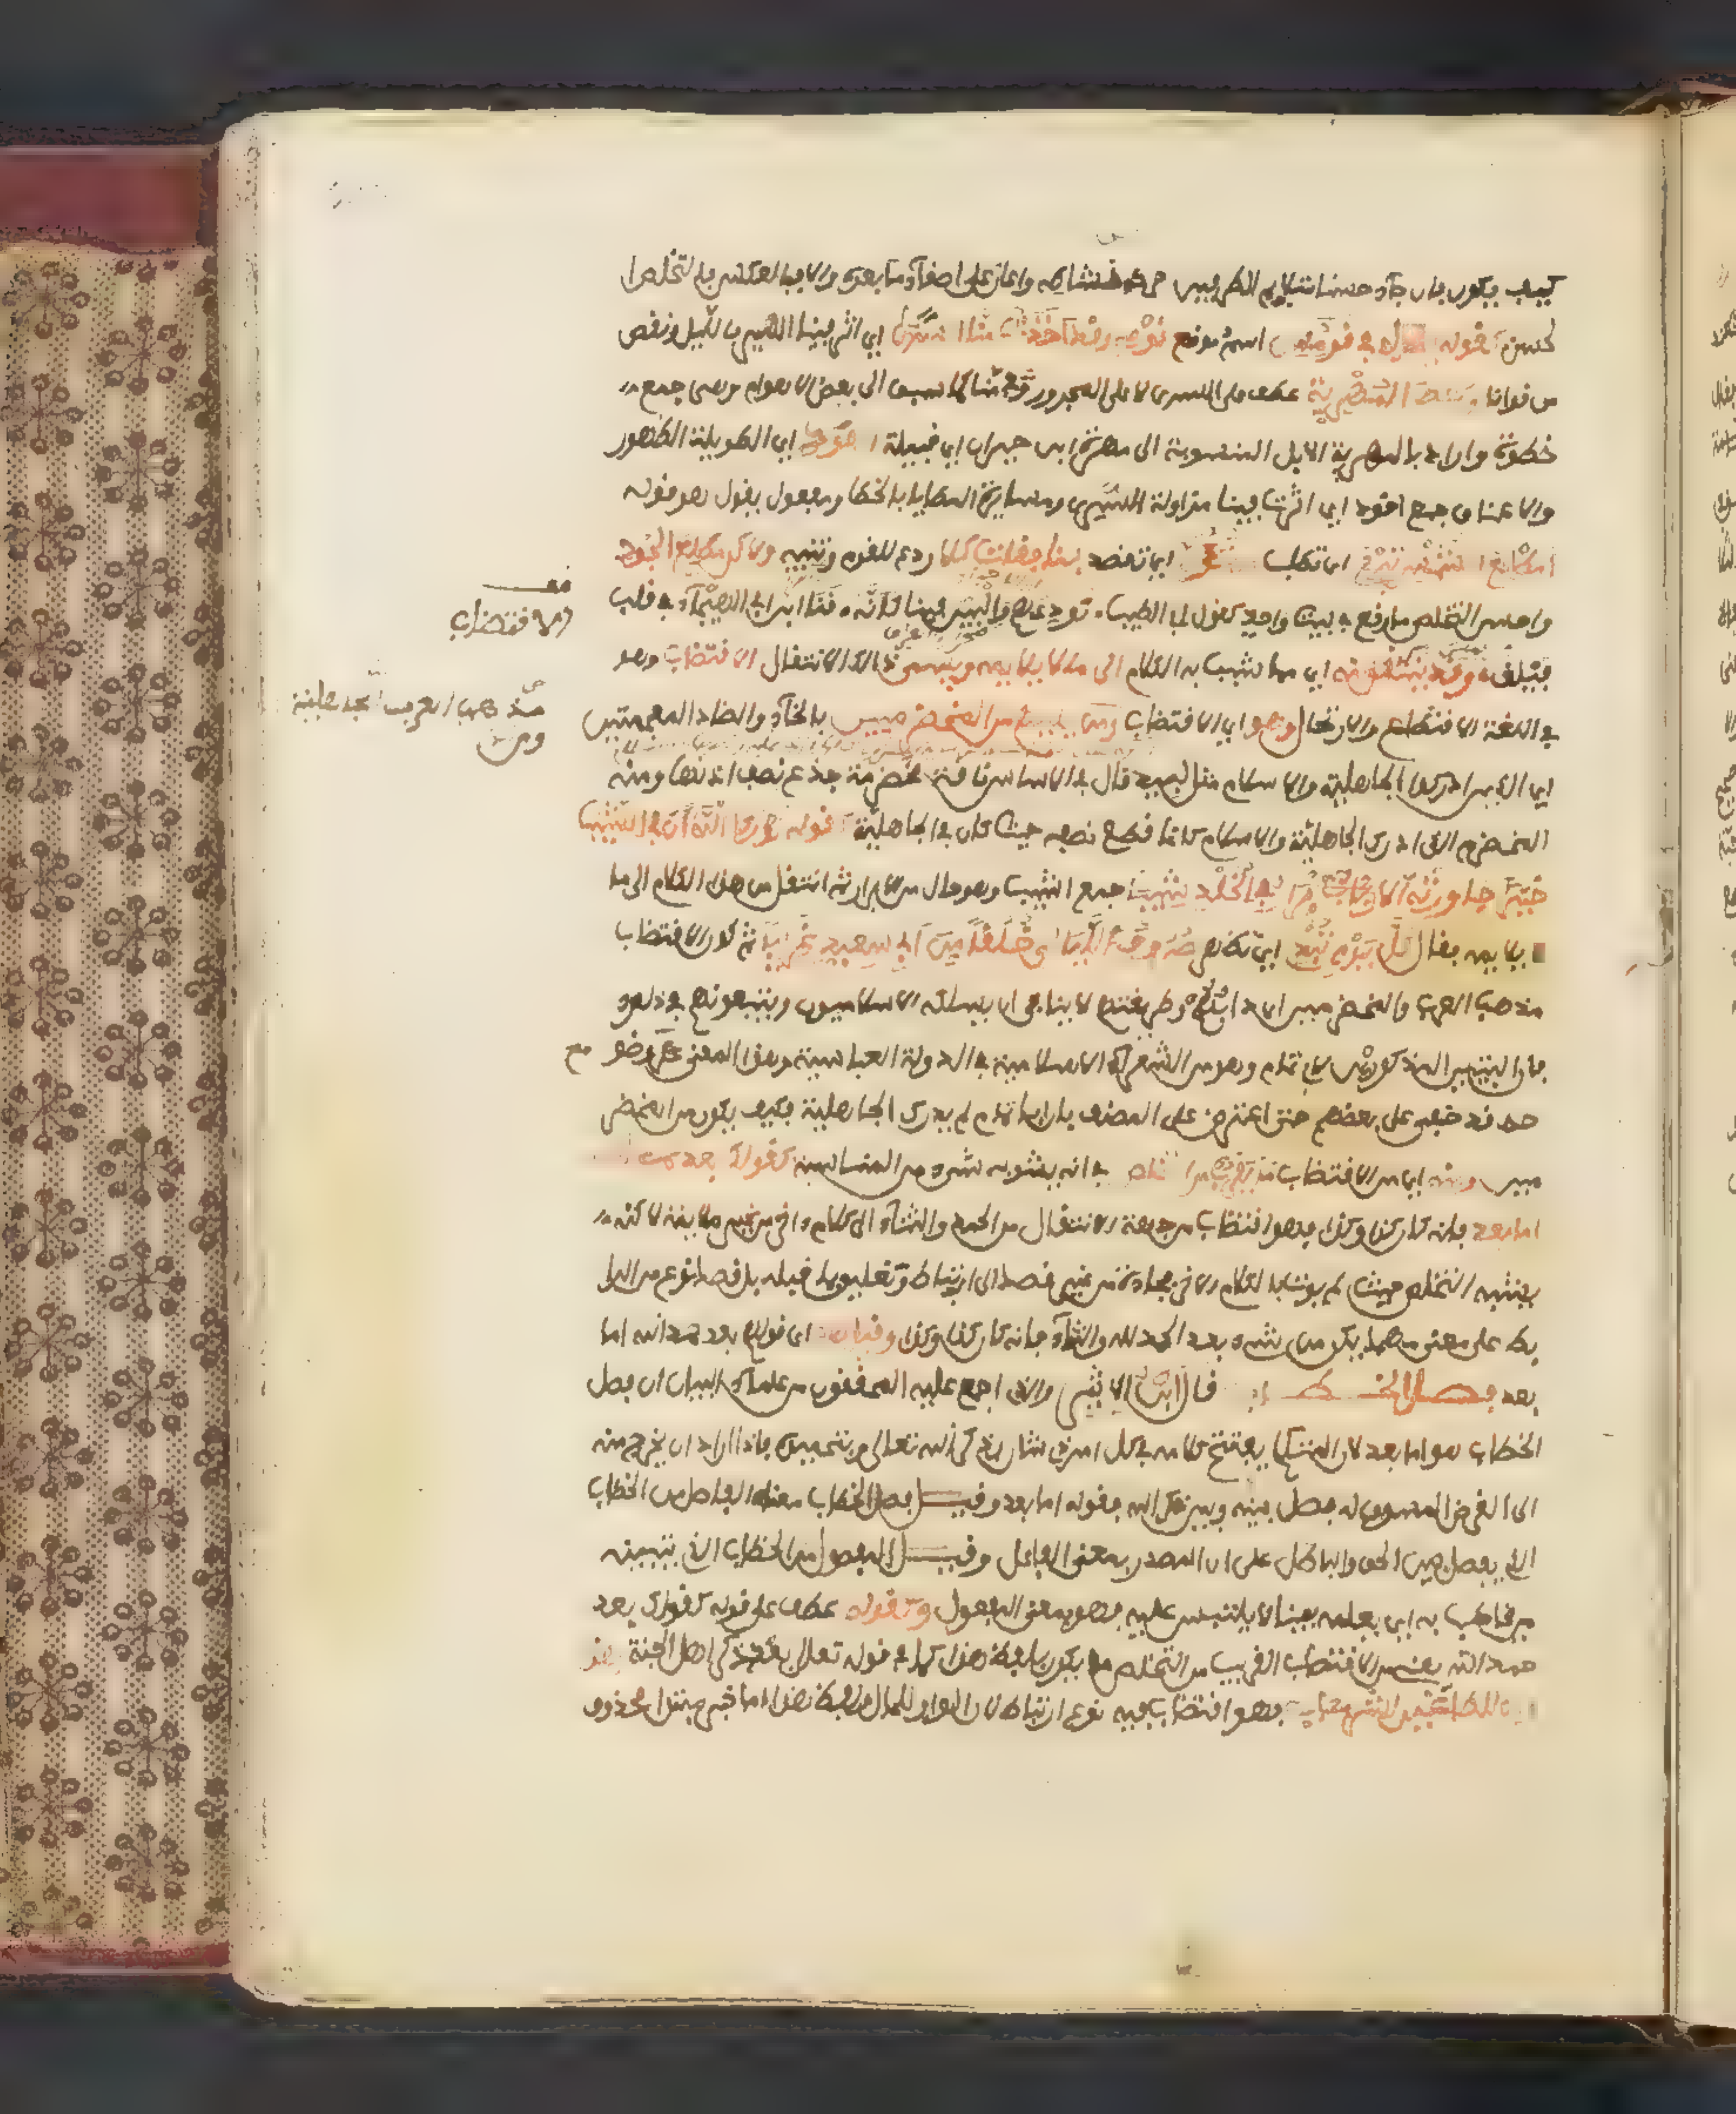 كيف يكون فان جاء حسنا متلايم الطرفين حرك من نشاطه واعان على اصغاء ما بعده والا فبالعكس فالتخلص ا
لحسن كقوله يقول في قومس اسم موضع قومي وقد اخذت منا السرى اي اثر فينا السير بالليل ونقص
من قوانا وخطا المهرية عطف على السرى لا على المجرور في منا كما سبق الى بعض الاوهام وهي جمع
خطوة واراد بالمهرية الابل المنسوبة الى مهرة ابن حيدان ابي قبيلة القود اي الطويلة الظهور
والاعناق جمع اقود اي اثرت فينا مزاولة السرى ومسايرة المطايا بالخطا ومفعول يقول هو قوله
امطلع الشمس تبغي اي تطلب ان تؤم اي تقصد بنا فقلت كلا ردع للقوم وتنبيه ولاكن مطلع الجود
واحسن التخلص ما وقع في بيت واحد كقول ابي الطيب نودعهم والبين فينا كانه قنا ابن ابي الهيجاء في قلب
فيلق وقد ينتقل منه اي مما شبب به الكلام الى ما لا يلايمه ويسمى ذالك الانتقال الاقتضاب وهو
في اللغة الاقتطاع والارتجال وهو اي الاقتضاب مذهب العرب الجاهلية ومن يليهم من المخضرمين بالخاء والضاد المعجمتين
اي الذين ادركوا الجاهلية والاسلام مثل لبيد قال في الاساس ناقة مخضرمة جذع نصف اذنها ومنه
المخضرم الذي ادرك الجاهلية والاسلام كانما قطع نصفه حيث كان في الجاهلية كقوله لو راى الله ان في الشيب
خيرا جاورته الابرار في الخلد شيبا جمع اشيب وهو حال من الابرار ثم انتقل من هذا الكلام الى ما
لا يلايمه فقال كل يوم تبدي اي تظهر صروف الليالي خلقا من ابي سعيد غريبا ثم كون الاقتضاب
مذهب العرب والمخضرمين اي دابهم وطريقتهم لا ينافي ان يسلكه الاسلاميون ويتبعونهم في ذلك
فان البيتين المذكورين لابي تمام وهو من الشعراء الاسلامية في الدولة العباسية وهذا المعنى مع وضو
حه قد خفي على بعضهم حتى اعترض على المصنف بان ابا تمام لم يدرك الجاهلية فكيف يكون من المخضر
مين ومنه اي من الاقتضاب ما يقرب من التخلص في انه يشوبه شيء من المناسبة كقولك بعد حمد الله
اما بعد فانه كان كذا وكذا فهو اقتضاب من جهة الانتقال من الحمد والثناء الى كلام اخر من غير ملايمة لاكنه
يشبه التخلص حيث لم يوت بالكلام الاخر فجاءة من غير قصد الى ارتباط وتعليق بما قبله بل قصد نوع من الر
بط على معنى مهما يكن من شيء بعد الحمد لله والثناء فانه كان كذا وكذا وقيل اي قولهم بعد حمد الله اما
بعد فصل الخطاب قال ابن الاثير والذي اجمع عليه المحققون من علماء البيان ان فصل
الخطاب هو اما بعد لان المتكلم يفتتح كلامه في كل امر ذي شان بذكر الله تعالى وتحميده فاذا اراد ان يخرج منه
الى الغرض المسوق له فصل بينه وبين ذكر الله بقوله اما بعد وقيل فصل الخطاب معناه الفاصل من الخطاب
الذي يفصل بين الحق والباطل على ان المصدر بمعنى الفاعل وقيل المفصول من الخطاب الذي يتبينه
من يخاطب به اي يعلمه بينا لا يلتبس عليه فهو بمعنى المفعول وكقوله عطف على قوله كقولك بعد
حمد الله يعني من الاقتضاب القريب من التخلص ما يكون بلفظ هذا كما في قوله تعالى بعد ذكر اهل الجنة هذ
ا وان للطاغين لشر مئاب فهو اقتضاب فيه نوع ارتباط لان الواو للحال ولفظ هذا اما خبر مبتدا محذوف
الاقتضاب
مذهب العرب الجاهلية
ومن